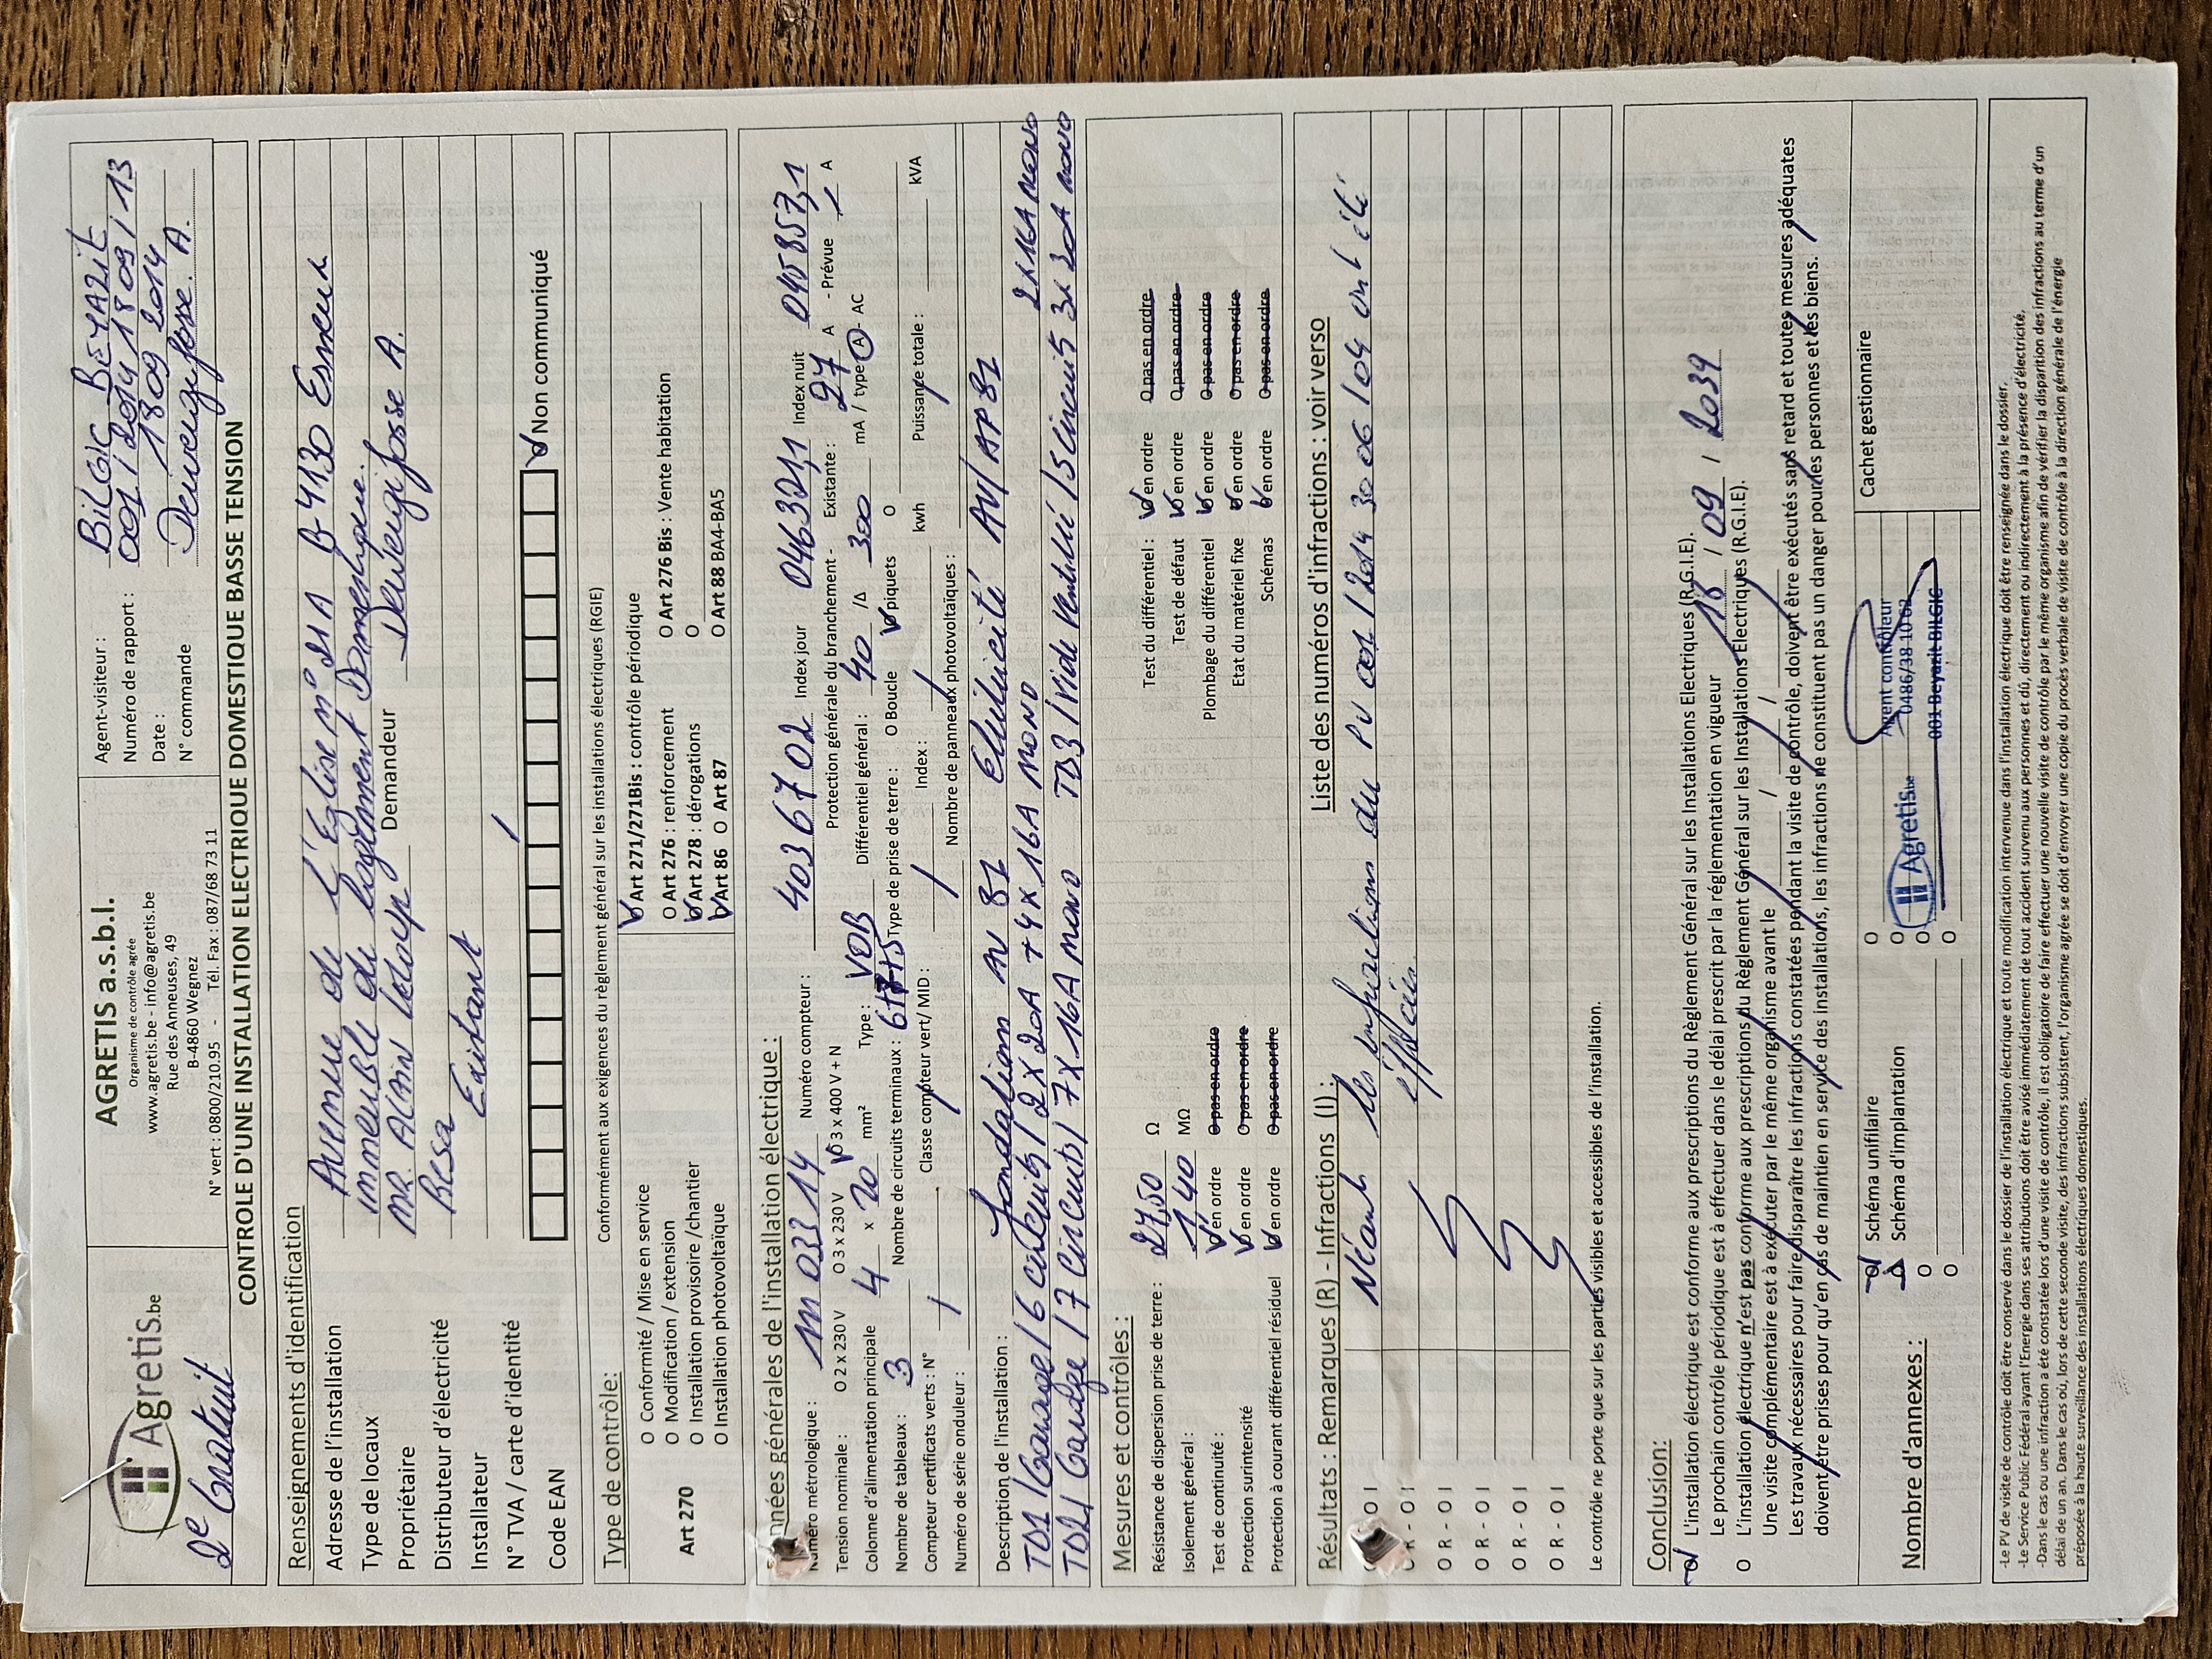 Agretis.be
2e Gratuit
AGRETIS a.s.b.l.
Organisme de contrôle agrée
www.agretis.be - info@agretis.be
Rue des Anneuses, 49
B-4860 Wegnez
N° vert : 0800/210.95 - Tél. Fax : 087/68 73 11
Agent-visiteur : BILGIC BEYAZIT
Numéro de rapport : 001/2014/1809/13
Date : 18 09 2014
N° commande
CONTROLE D'UNE INSTALLATION ELECTRIQUE DOMESTIQUE BASSE TENSION
Renseignements d'identification
Adresse de l'installation Avenue de l'Eglise n° 21A B-4130 Esneux
Type de locaux immeuble de logement Domestique.
Propriétaire Mr. Alain Demandeur A.
Distributeur d'électricité Resa
Installateur Existant
N° TVA / carte d'identité /
Code EAN Non communiqué
Type de contrôle: Conformément aux exigences du règlement général sur les installations électriques (RGIE)
Art 270
O Conformité / Mise en service
O Modification / extension
O Installation provisoire /chantier
O Installation photovoltaïque
Art 271/271Bis : contrôle périodique
O Art 276 : renforcement O Art 276 Bis : Vente habitation
Art 278 : dérogations O
Art 86 O Art 87 O Art 88 BA4-BA5
Données générales de l'installation électrique :
Numéro métrologique : m 033 14 Numéro compteur : 40367702 Index jour 046321,1 Index nuit
Tension nominale : O 2 x 230 V O 3 x 230 V 3 x 400 V + N Protection générale du branchement - Existante : 27 A - Prévue / A
Colonne d'alimentation principale 4 x 10 mm² Type : VOB Différentiel général : 40 /Δ 300 mA / type A - AC
Nombre de tableaux : 3 Nombre de circuits terminaux : Type de prise de terre : O Boucle piquets O
Compteur certificats verts : N° / Classe compteur vert/ MID : / Index : / kwh Puissance totale : kVA
Numéro de série onduleur : Nombre de panneaux photovoltaïques :
Description de l'installation : Fondation AV 81 Electricité AV/AP 81
TD1/Garage/6 circuits/2x20A +4x16A mono 2x16A mono
TD2/ /7 circuits/7x16A mono TD3/Vide Ventilé/5circuits 3x20A mono
Mesures et contrôles :
Résistance de dispersion prise de terre : 27,50 Ω
Isolement général : 1,40 MΩ
Test de continuité : en ordre O pas en ordre
Protection surintensité en ordre O pas en ordre
Protection à courant différentiel résiduel en ordre O pas en ordre
Test du différentiel : en ordre O pas en ordre
Test de défaut en ordre O pas en ordre
Plombage du différentiel en ordre O pas en ordre
Etat du matériel fixe en ordre O pas en ordre
Schémas en ordre O pas en ordre
Résultats : Remarques (R) - Infractions (I) : Liste des numéros d'infractions : voir verso
O I Néant les infractions du PV 001/2014 3006/04 ont été
O R - O I effacées.
O R - O I
O R - O I
O R - O I
O R - O I
Le contrôle ne porte que sur les parties visibles et accessibles de l'installation.
Conclusion:
L'installation électrique est conforme aux prescriptions du Règlement Général sur les Installations Electriques (R.G.I.E).
Le prochain contrôle périodique est à effectuer dans le délai prescrit par la réglementation en vigueur 18 / 09 / 2039
O L'installation électrique n'est pas conforme aux prescriptions du Règlement Général sur les Installations Electriques (R.G.I.E).
Une visite complémentaire est à exécuter par le même organisme avant le / /
Les travaux nécessaires pour faire disparaître les infractions constatées pendant la visite de contrôle, doivent être exécutés sans retard et toutes mesures adéquates
doivent être prises pour qu'en cas de maintien en service des installations, les infractions ne constituent pas un danger pour les personnes et les biens.
Nombre d'annexes :
Schéma unifilaire
Schéma d'implantation
Agretis.be
Agent contrôleur
0486/38 10 62
001 Beyazit BILGIC
Cachet gestionnaire
-Le PV de visite de contrôle doit être conservé dans le dossier de l'installation électrique et toute modification intervenue dans l'installation électrique doit être renseignée dans le dossier.
-Le Service Public Fédéral ayant l'Energie dans ses attributions doit être avisé immédiatement de tout accident survenu aux personnes et dû, directement ou indirectement à la présence d'électricité.
-Dans le cas ou une infraction a été constatée lors d'une visite de contrôle, il est obligatoire de faire effectuer une nouvelle visite de contrôle par le même organisme afin de vérifier la disparition des infractions au terme d'un
délai de un an. Dans le cas où, lors de cette seconde visite, des infractions subsistent, l'organisme agréée se doit d'envoyer une copie du procès verbale de visite de contrôle à la direction générale de l'énergie
préposée à la haute surveillance des installations électriques domestiques.